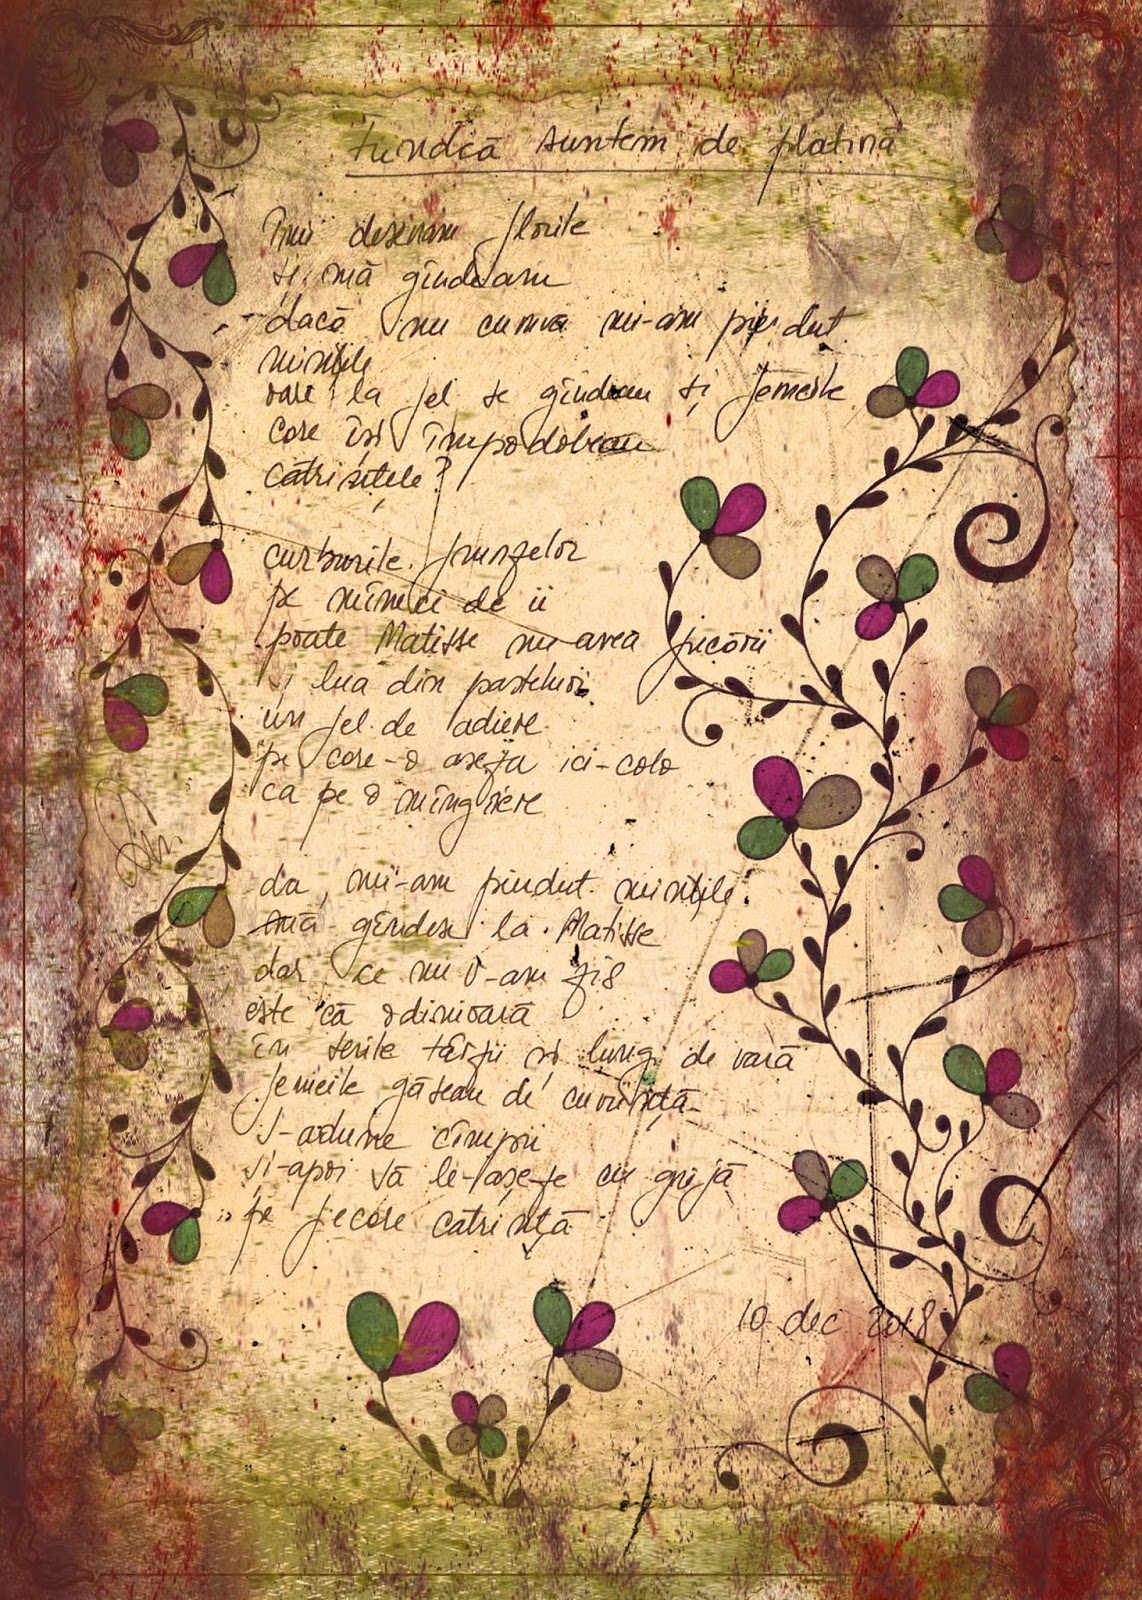 fundcă suntem de platină
îmi desenam florile
și mă gîndeam
dacă nu cumva mi-am pierdut
mințile
oare la fel se gîndeau și femeile
care își împodobeau
catrințele?
curburile frunzelor
pe mîneci de ii
poate Matisse nu avea jucării
și lua din pasteluri
un fel de adiere
pe care-o așeza ici-colo
ca pe o mîngîiere
da, mi-am pierdut mințile
mă gîndesc la Matisse
dar ce nu v-am zis
este că odinioară
în serile tîrzii și lungi de vară
femeile găseau de cuviință
s-adune cîmpii
și-apoi să le-așeze cu grijă
pe fiecare catrință
10 dec 2018